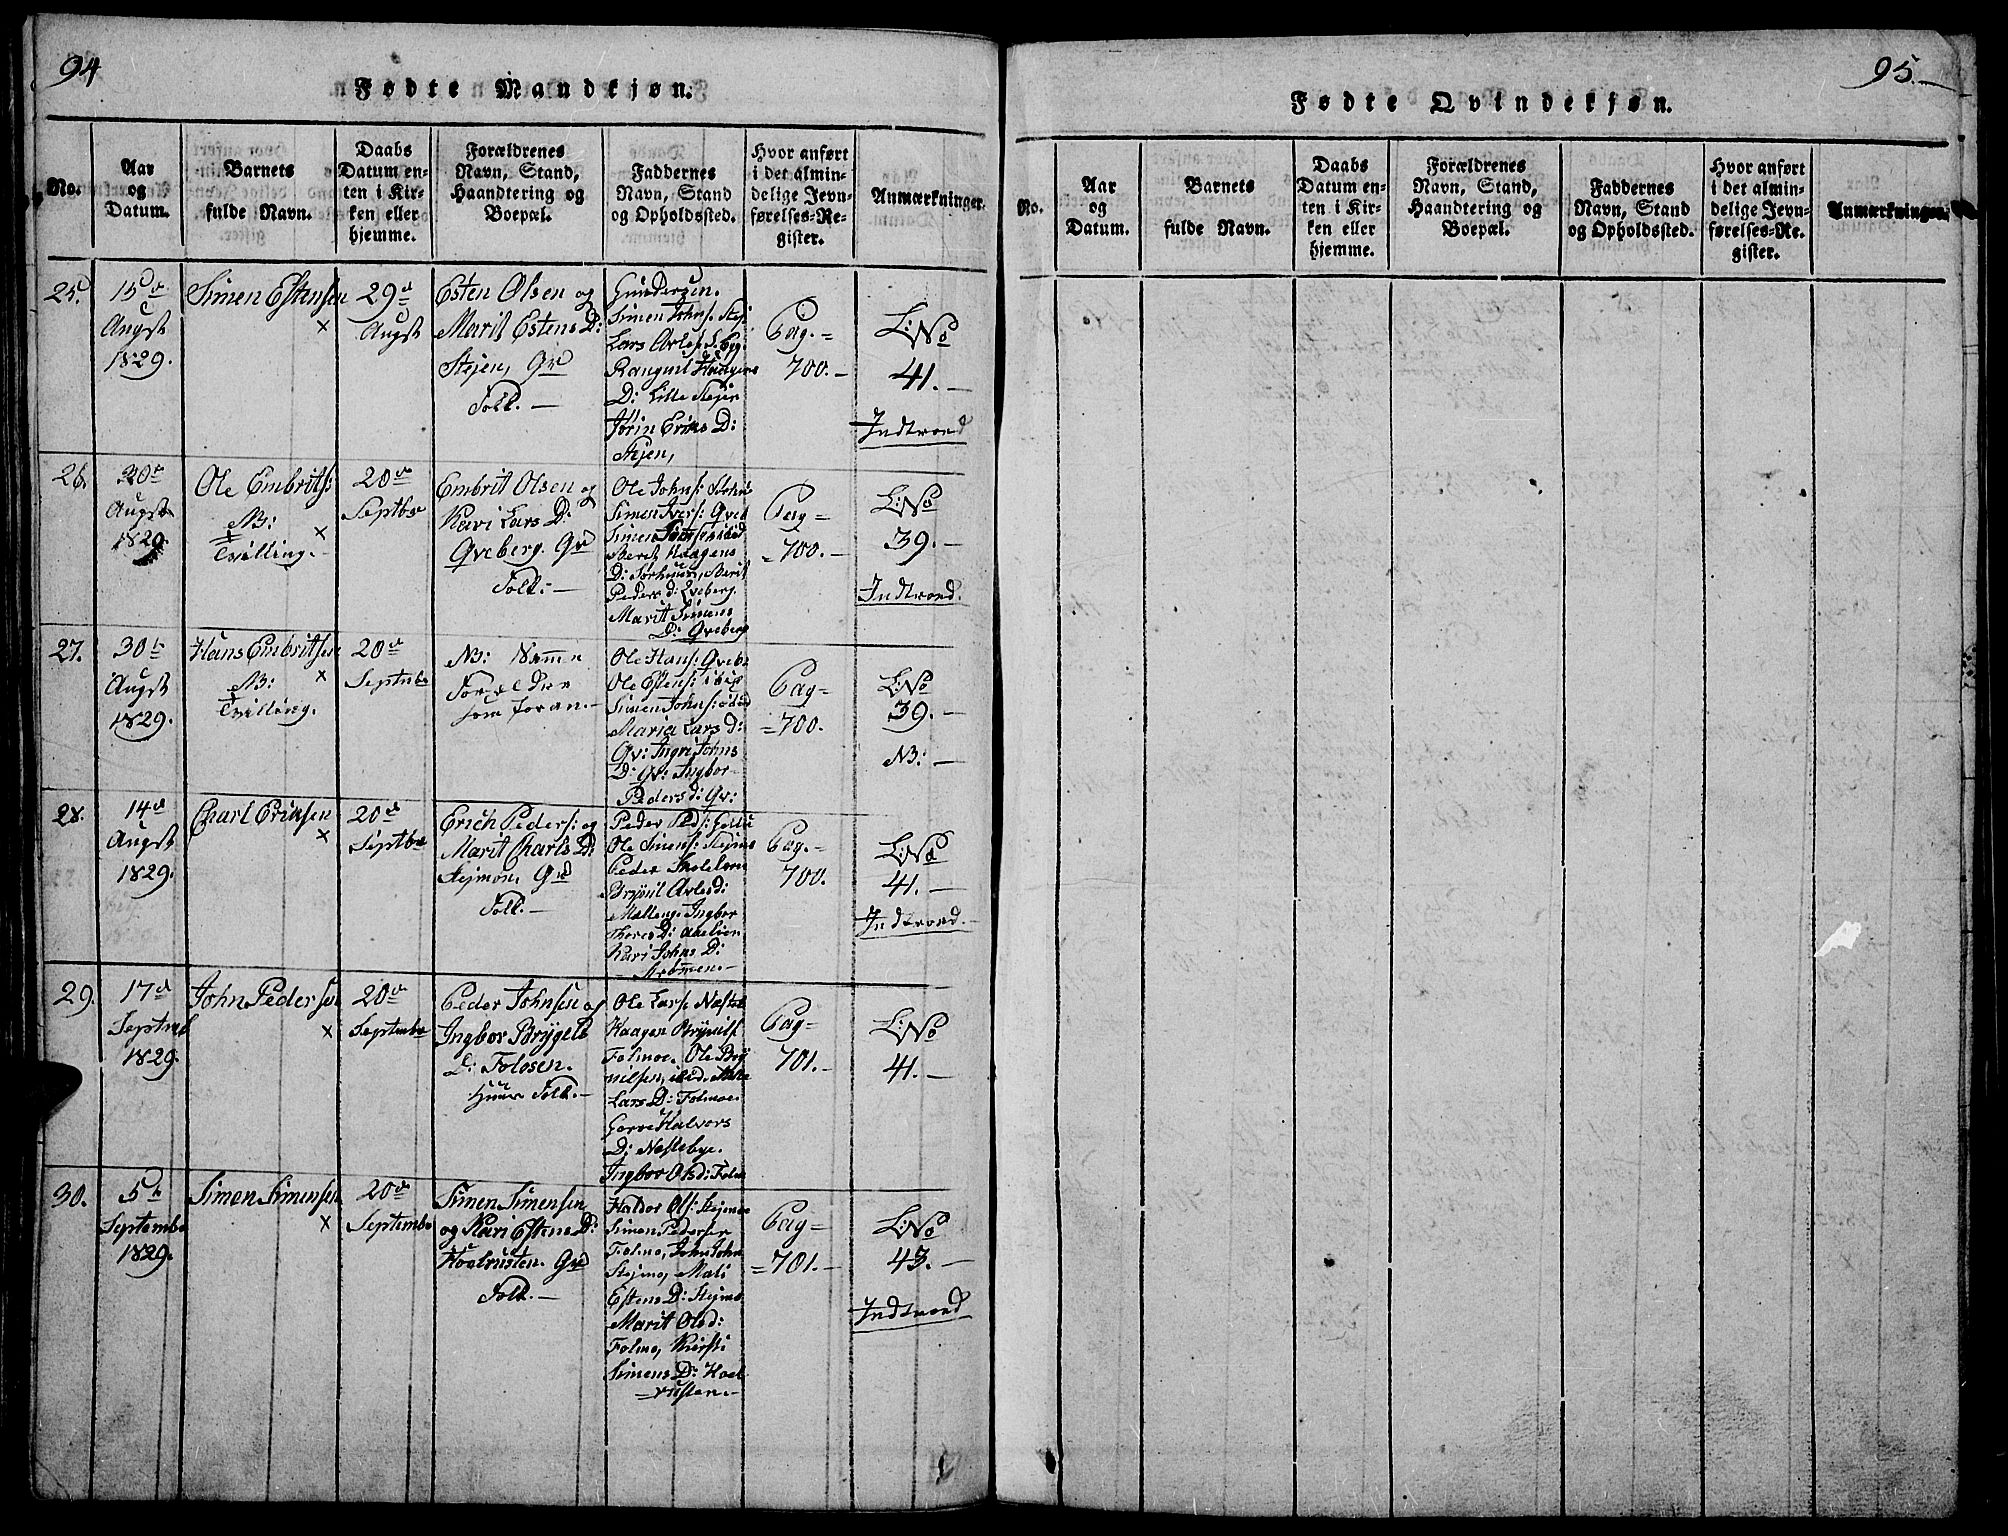 94
Fødte Mandkjøn.
No.
Aar
og
Datum.
Barnets
fulde Navn.
Daabs
Datum en-
ten i Kir-
ken eller
hjemme.
Forældrenes
Navn, Stand,
Haandtering og
Boepæl.
Faddernes
Navn, Stand
og Opholdssted.
Hvor anført
i det almin-
delige Jevn-
førelses-Re-
gister.
Anmærkninger.
25.
15de
Augst
1829.
Simen Estensen
×
29d
Augst
Esten Olsen og
Marit Estens D:
Stejen, Grd
Folk. —
Gundersen.
Simen Johns:
Lars
Rangnil
D: Lille Stejen
Jörin Eriks D:
Stjen,
Pag. =
700. —
L: No
41. —
Indtrond
26.
Augst
1829.
Ole Embrits:
NB:
Tvilling. —
×
20de
Septbr
Embrit Olsen og
Kari Lars D:
Qveberg. Grd
Folk: —
Ole Johns:
Simen Ivers: Qveb
Simen
Berit Haagens
D: Berit
Peders d: Qveberg.
Marit Simens
D: Qveberg
Pag =
= 700. —
L: No
39. —
Indtrond.
27.
30te
Augst
1829.
Hans Embritsen
NB:
×
Tvilling.
20de
Septmbr
NB: Samme
Forældre
som foran. —
Ole Hans: Qveb
Ole Estens: ibid
Simen Johns:
Maria Lars d:
Qv: Ingri Johns
D: Qv: Ingbor
Peders d: Qv:
Pag =
= 700.
L: No
39. —
NB: —
28.
14de
Augst
1829.
Charl Eriksen
×
20de
Septbr
Erich Peders: og
Marit Charls D:
Stejmon, Grd
Folk. —
Peder Peds:
Ole Simens: Stejmo
Peder
Brynil Arles d:
Mælling. Ingbor
Thores D:
Kari Johns D:
Strømmen. —
Pag. =
700.
L: No
41. —
Indtrond. —
29.
17de
Septmb
1829.
John Pedersen
×
20de
Septmbr
Peder Johnsen og
Ingbor Brygels
D: Folosen.
Huus Folk. —
Ole Lars:
Haagen Brynils:
Folmoe. Ole Bry
nilsen, ibid.
Lars D: Folmoe.
Halvors
D: Næstebye.
Ingbor Ols d: Folm
Pag =
701. —
L: No
41. —
30.
5te
Septembr
1829.
Simen Simensen
×
20de
Septembr
Simen Simensen
og Kari Estens D:
Hoelrusten. Grd
Folk. —
Haldor Ols: Stejmoe
Simen Pedersen
Folmo, John Johns
Stejmo, Mali
Estens D: Stejmo
Marit Ols d:
Folmo, Kirsti
Simens D: Hoel
= rusten. —
Pag =
= 701. —
L: No
43. —
Indtrond
95. —
Fødte Qvindekjøn.
No.
Aar
og
Datum.
Barnets
fulde Navn.
Daabs
Datum en-
ten i Kir-
ken eller
hjemme.
Forældrenes
Navn, Stand,
Haandtering og
Boepæl.
Faddernes
Navn, Stand
og Opholdssted.
Hvor anført
i det almin-
delige Jevn-
førelses-Re-
gister.
Anmærkninger.